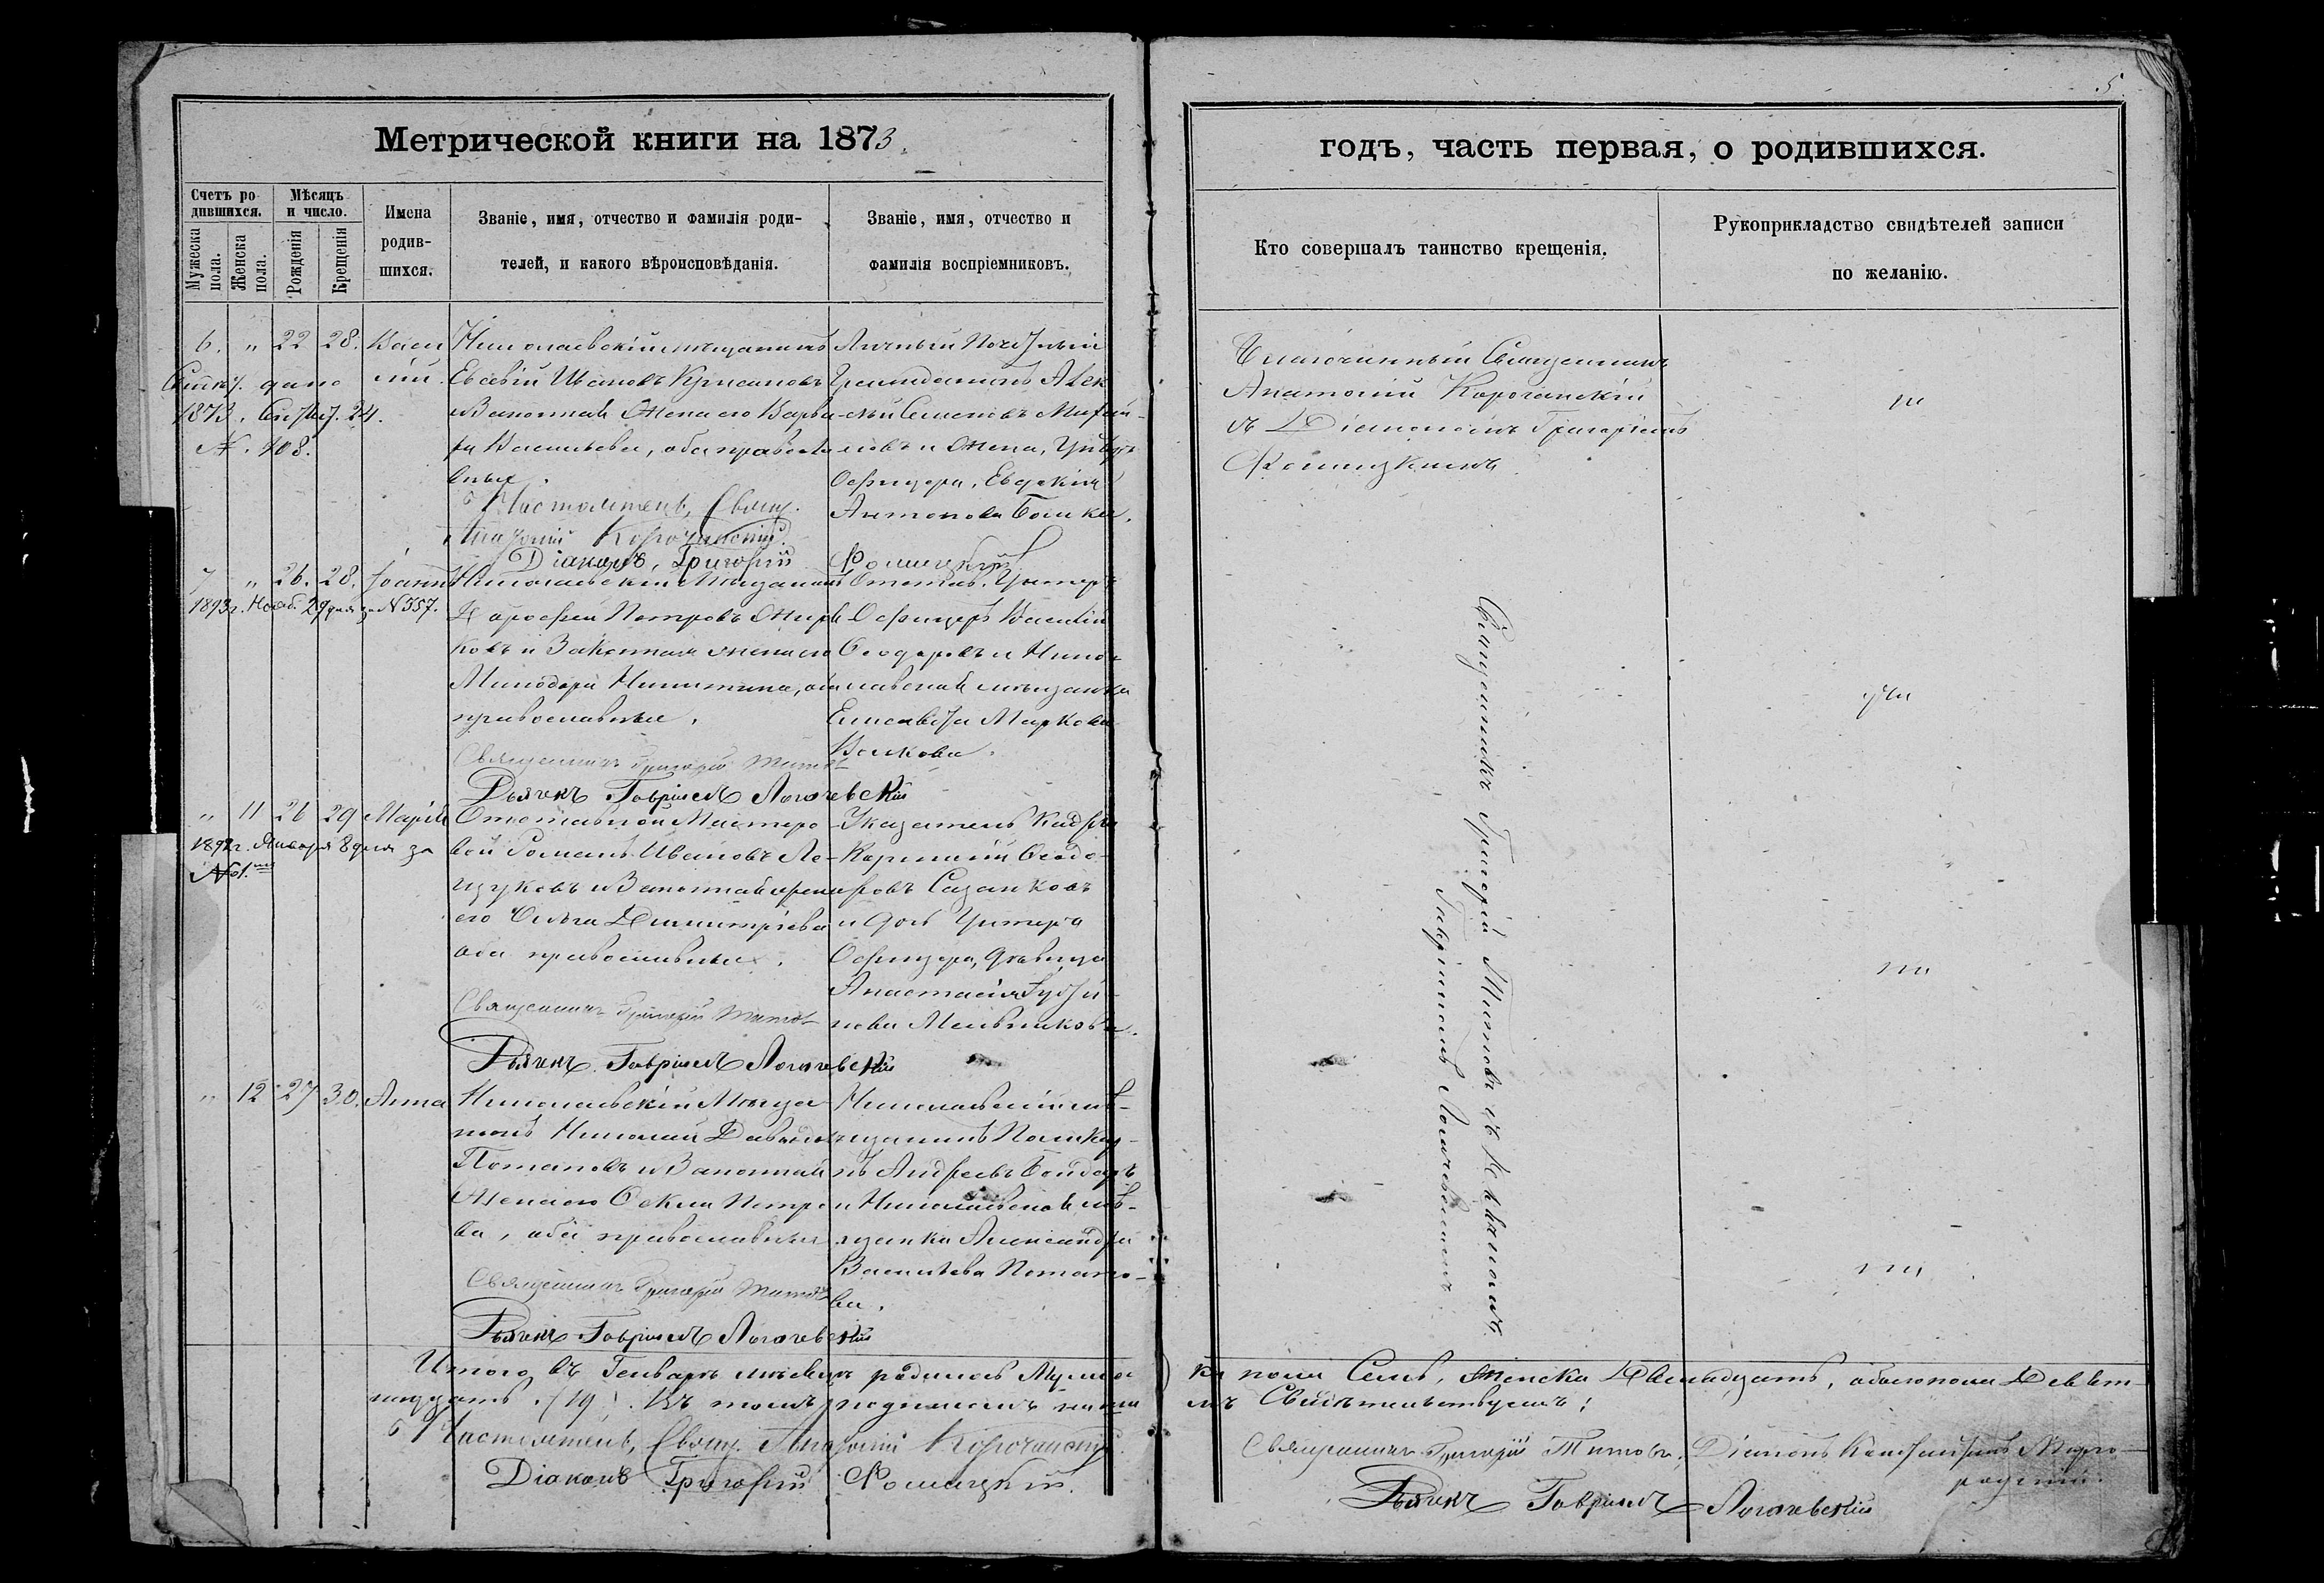 5
Метрической книги на 1873
годъ, часть первая, о родившихся.
Счетъ ро
дившихся.
Мужеска
пола.
Женска
пола.
Мѣсяцъ
и число.
Рожденія
Крещенія
Имена
родив-
шихся.
Званіе, имя, отчество и фамилія роди-
телей, и какого вѣроисповѣданія.
Званіе, имя, отчество и
фамилія воспріемниковъ.
Кто совершалъ таинство крещенія.
Рукоприкладство свидѣтелей записи
по желанію.
6. " 22 28. Васи
лій.
дано
24.
№. 408.
Николаевскій мѣщанинъ
Евсевій Ивановъ
и законная жена его Варва-
ра Васильева, оба правосла
вные.
Настоятель, Свящ.
Анатолій Корочанскій
Діаконъ, Григорій Фомицкій
Личный Почетный
Гражданинъ Алек
сѣй Семеновъ Михай-
ловъ и жена, Унтеръ
Офицера, Евдокія
Антонова
Благочинный Священникъ
Анатолій Корочанскій
съ Діакономъ Григоріемъ
Фомицкимъ
7 " 26. 28. Іоаннъ
1893г. Нояб. 29 дня за №557.
Николаевскій Мѣщанинъ
Дорофей Петровъ
ковъ и Законная жена его
Минодора Никитина, оба
православные.
Священникъ Григорій Титовъ
Дьячекъ Гавріилъ Логачевскій
Отстав. Унтеръ
Офицеръ Василій
Ѳеодоровъ и Нико-
лаевская мѣщанка
Елисавета Маркова
Волкова.
Священникъ Григорій Титовъ съ
Гавріиломъ Логачевскимъ
" 11 26 29 Марія
1892г. Января 8 дня за
№1.
Отставной Мастеро
вой Романъ Ивановъ Ло-
цуковъ и Законная жена
его Ольга Димитріева
оба православные.
Священникъ Григорій Титовъ
Дьячекъ Гавріилъ Логачевскій
Указатель
Ѳеодо-
ровъ Сазанковъ
и дочь Унтеръ
Офицера, дѣвица
Анастасія
нова Мельникова.
" 12 27 30. Анна
Николаевскій Мѣща
нинъ Николай Давидовъ
Потаповъ и Законная
Жена его Ѳекла Петро
ва, оба православные
Священникъ Григорій Титовъ
Дьячекъ Гавріилъ Логачевскій
Николаевскій мѣ-
щанинъ
Андреевъ Бондарь
и Николаевская мѣ-
щанка Александра
Васильева Потапо-
ва.
Итого въ Генварѣ мѣсяцѣ родилось Мужес
ка пола Семь, Женска Двенадцать, обоего пола Девят-
надцать (19). Въ томъ подписомъ наши
мъ Свидѣтельствуемъ:
Настоятель, Свящ. Анатолій Корочанскій
Діаконъ Григорій Фомицкій.
Священникъ Григорій Титовъ. Діаконъ
Дьячекъ Гавріилъ Логачевскій